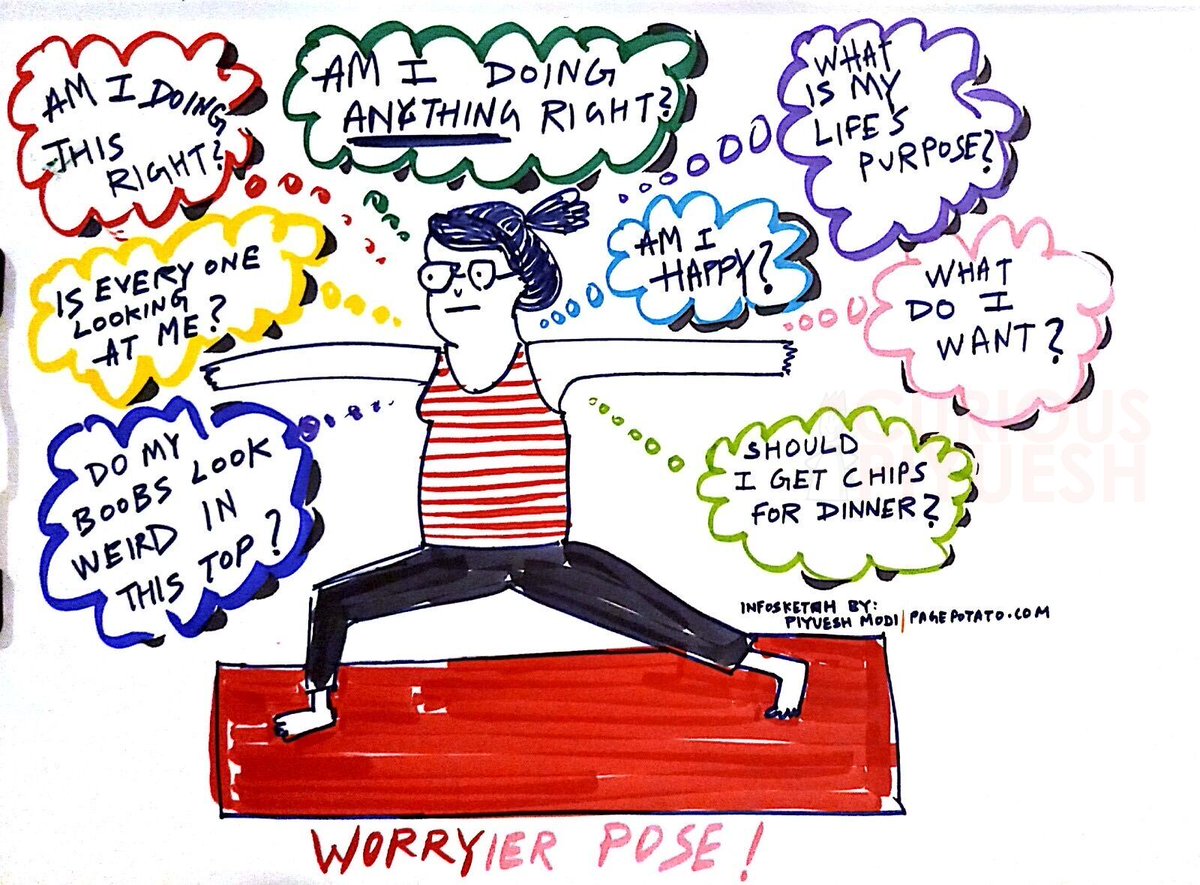 AM I DOING
THIS
RIGHT?
AM I DOING
ANYTHING RIGHT?
WHAT
IS MY
LIFE'S
PURPOSE?
IS EVERYONE
LOOKING
AT ME?
AM I
HAPPY?
WHAT
DO I
WANT?
DO MY
BOOBS LOOK
WEIRD IN
THIS TOP?
SHOULD
I GET CHIPS
FOR DINNER?
CURIOUS
PIYUESH
INFOSKETCH BY:
PIYUESH MODI|PAGEPOTATO.COM
WORRYIER POSE!